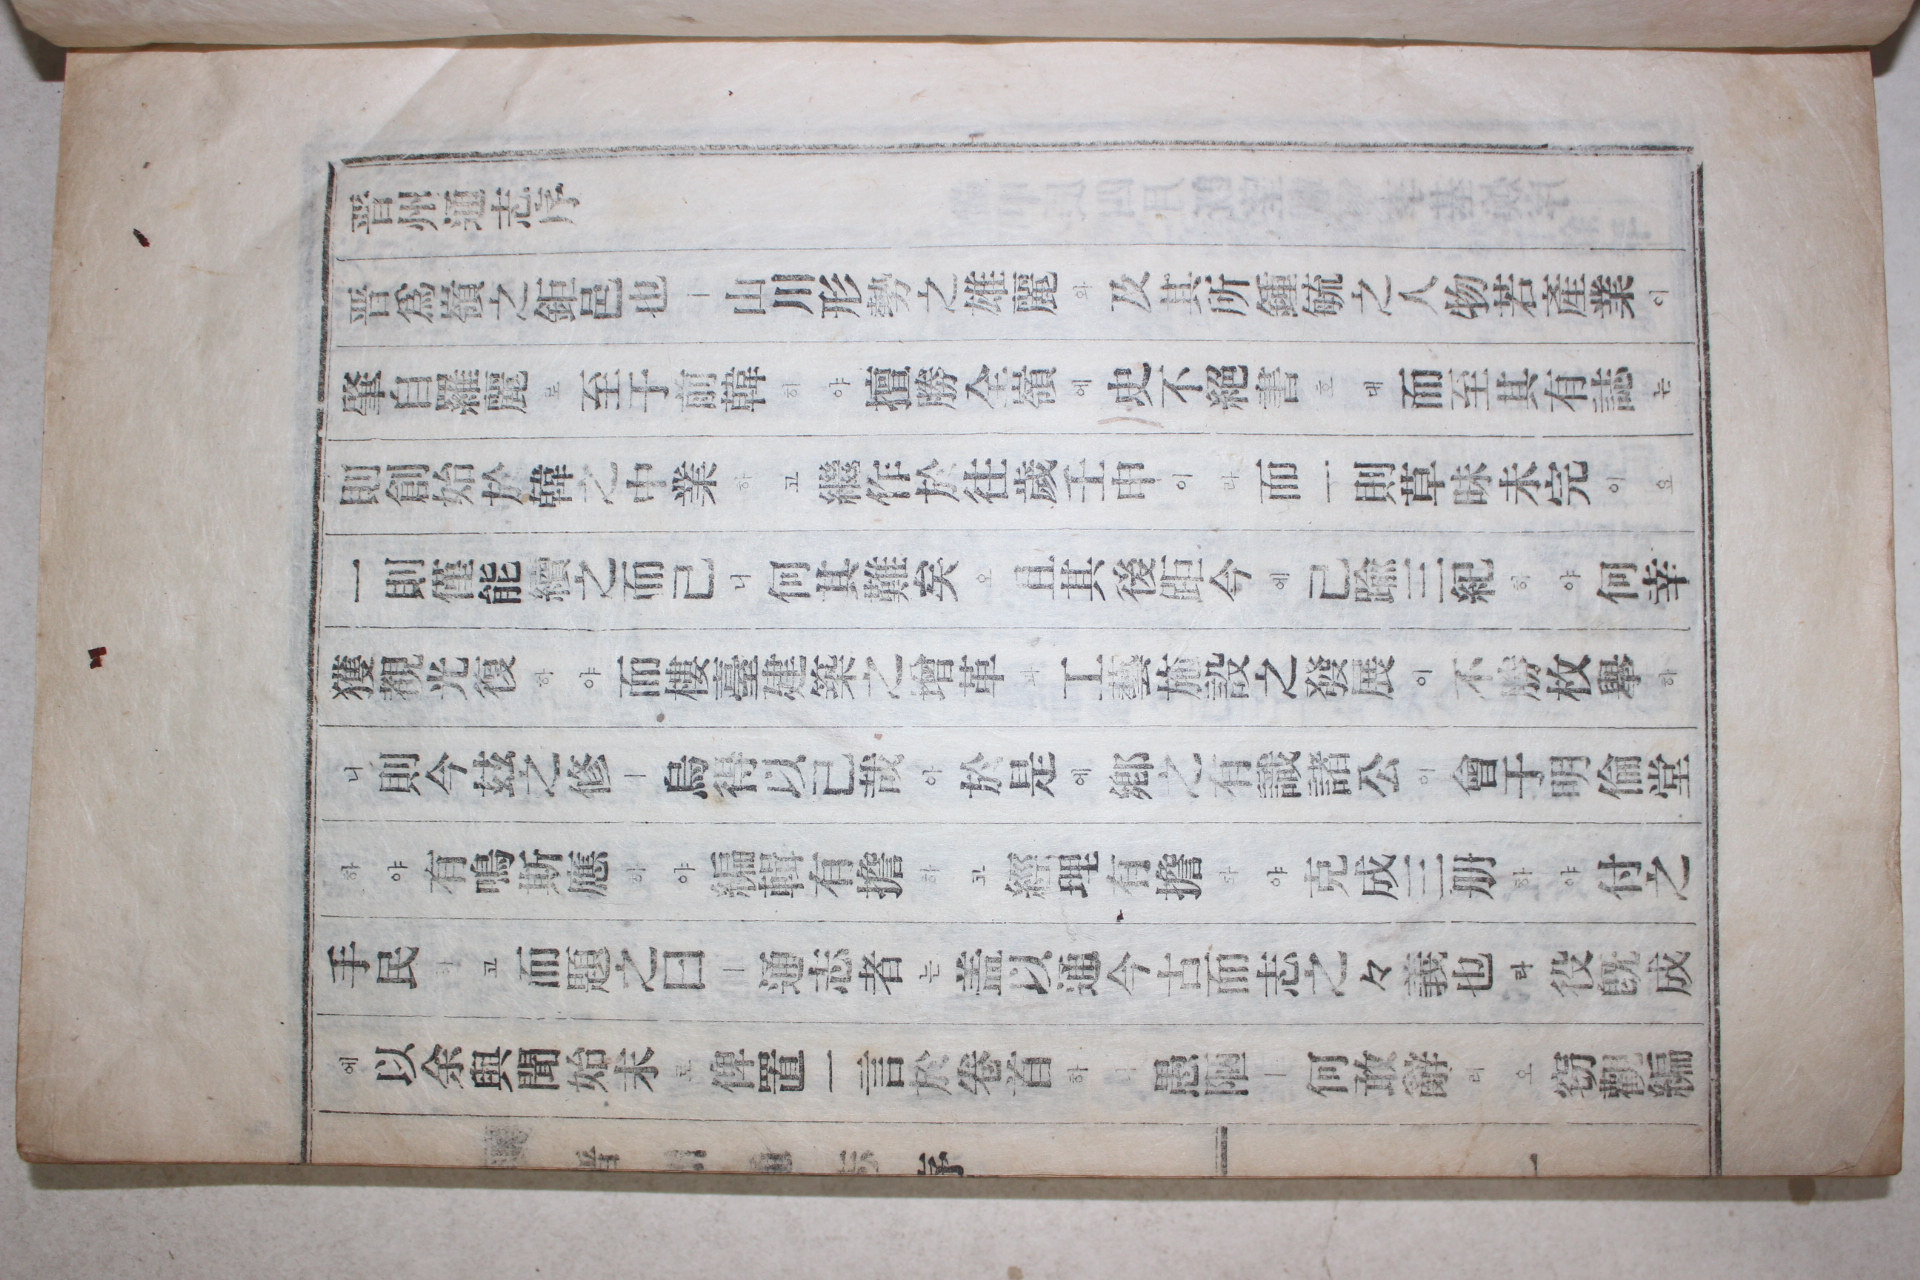 晉州通志序
晋爲嶺之鉅邑也ㅣ山川形勢之雄麗와及其所鍾毓之人物若產業이
肇自羅麗로至于前韓하야擅勝全嶺에史不絕書호대而至其有誌는
則創始於韓之中業하고繼作於往歲壬申이라而一則草昧未完이요
一則僅能續之而已니何其難矣오且其後距今에已踰三紀하야何幸
獲覩光復하야而樓臺建築之增革과工藝施設之發展이不勝枚擧하
니則今玆之修ㅣ烏得以已哉아於是에鄕之有識諸公이會于明倫堂
하야有鳴斯應하야編輯有擔하고經理有擔하야克成三册하야付之
手民하고而題之曰ㅣ通志者는盖以通今古而志之々義也라役旣成
에以余與聞始末로俾置一言於卷首하니愚陋ㅣ何敢辭리오窃觀編
晋州通志序 一